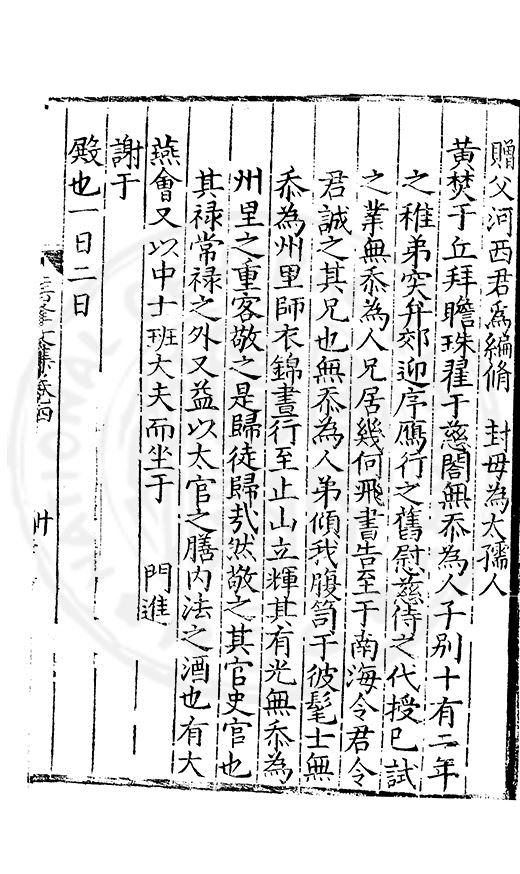 贈父河西君爲編脩 封毋為太孺人
黃焚于丘拜瞻珠翟于慈闈無忝為人子别十有二年
之稚弟突弁郊迎序鴈行之舊慰慈侍之代授已試
之業無忝為人兄居幾何飛書告至于南海令君令
君誠之其兄也無忝為人弟傾我腹笥于彼髦士無
忝為州里師衣錦晝行至止山立輝其有光無忝為
州里之重客敬之是歸徒歸㢤然敬之其官史官也
其禄常禄之外又益以太官之膳內法之酒也有大
燕會又以中士班大夫而坐于 門進
謝于
殿也一日二日
文集卷四